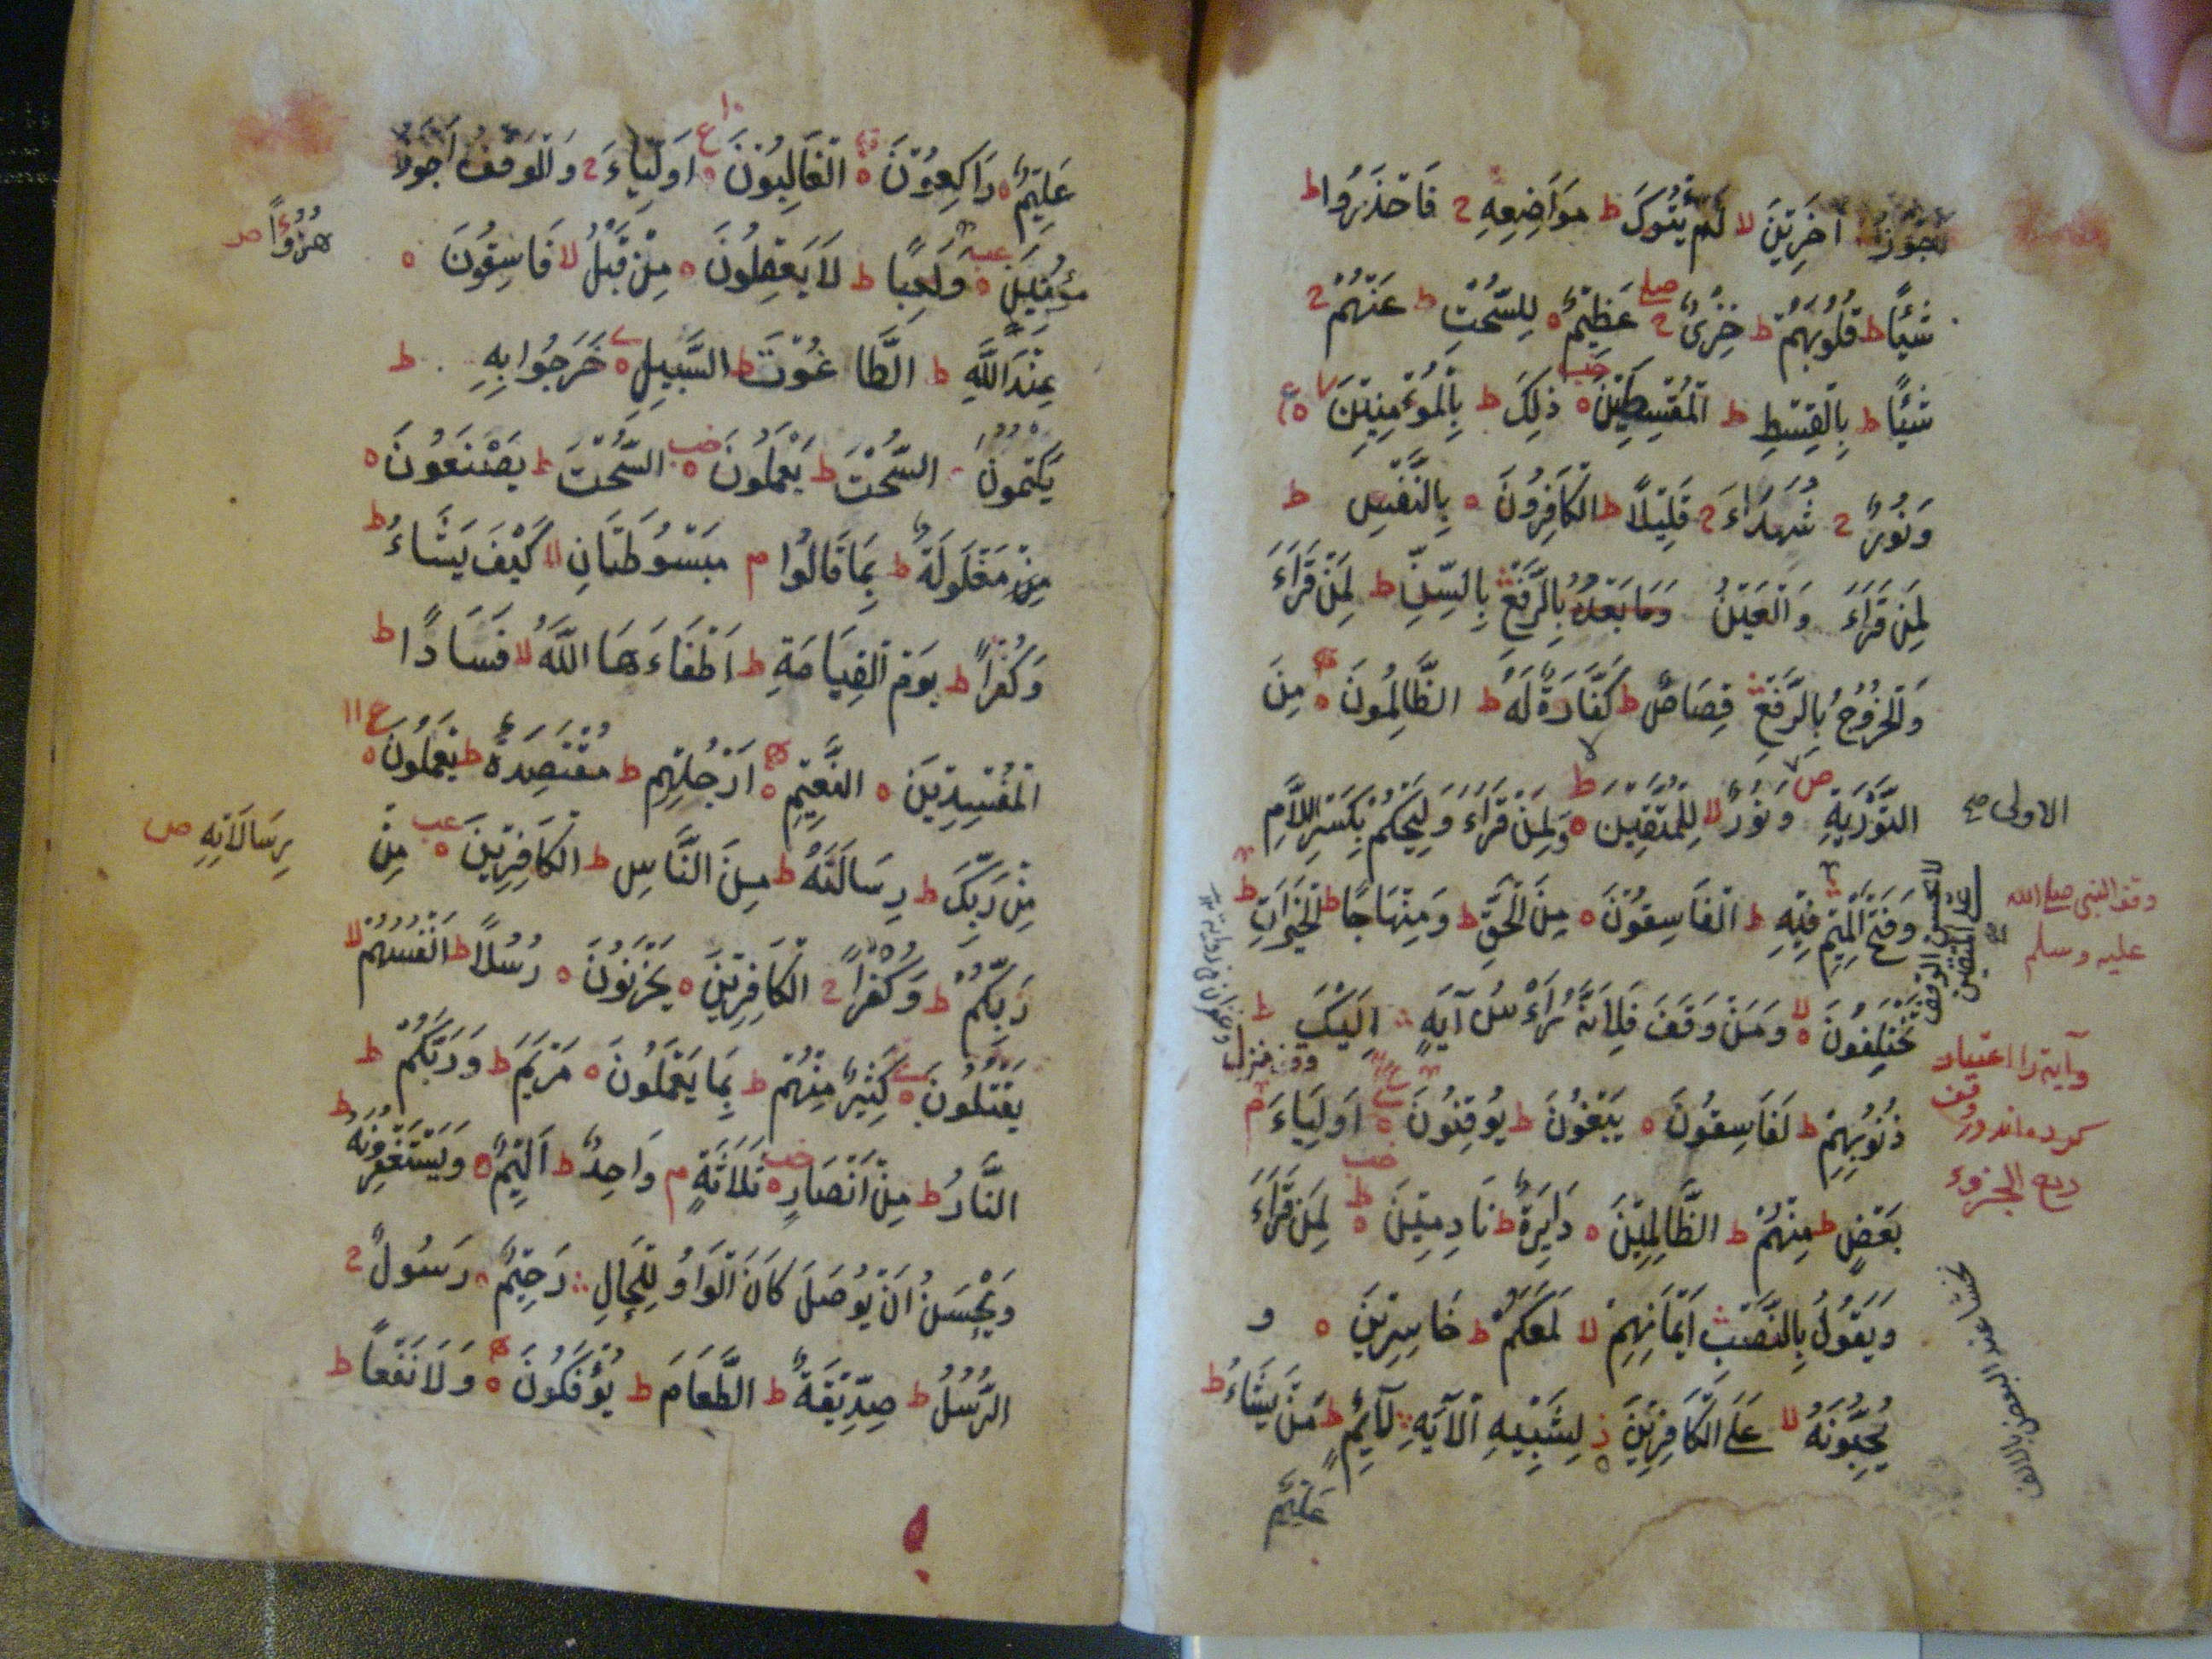 اٰخَرِيْنَ لا لَمْ يَأْتُوكَ ط مَوَاضِعِهِ ح فَاحْذَرُوا ط
شَيْئًا ط قُلُوبُهُمْ ط خِزْىٌ ح صلے عَظِيْمٌ ه لِلسُّحْتِ ط عَنْهُمْ ح
شَيْئًا ط بِالْقِسْطِ ط الْمُقْسِطِيْنَ ه خب ذٰلِكَ ط بِالْمُؤْمِنِيْنَ ه ع
وَنُوْرٌ ح شُهَدَاءَ ح قَلِيْلًا ط الْكَافِرُونَ ه بِالنَّفْسِ ط
لِمَنْ قَرَاءَ وَالْعَيْنُ وَمَا بَعْدَهُ بِالرَّفْعِ بِالسِّنِّ ط لِمَنْ قَرَاءَ
وَالْجُرُوْحُ بِالرَّفْعِ قِصَاصٌ ط كَفَّارَةٌ لَهُ ط الظَّالِمُونَ ه مِنَ
التَّوْرٰيةِ ص وَنُوْرٌ لا لِلْمُتَّقِيْنَ ه ط وَلِمَنْ قَرَاءَ وَلِيَحْكُمَ بِكَسْرِ اللَّامِ
الاولى صح
وَفَتْحِ الْمِيْمِ فِيْهِ ط الْفَاسِقُوْنَ ه مِنَ الْحَقِّ ط وَمِنْهَاجًا ط الْخَيْرَاتِ ط
لا يحسن الوقف على المتقين
وقف النبى صلے الله
عليه وسلم
تَخْتَلِفُونَ لا ه وَمَنْ وَقَفَ فَلِاَنَّهُ رَاْسُ اٰيَةٍ اِلَيْكَ ط
وقف منزل
ذُنُوْبِهِمْ ط لَفَاسِقُونَ ه يَبْغُونَ ط يُوقِنُونَ ه ع اَوْلِيَاءَ م
وآيةرا اعتبار
كرده اند وقف
ربع الجزوء
بَعْضٍ ط مِنْهُمْ ط الظَّالِمِيْنَ ه دَايِرَةٌ ط نَادِمِيْنَ ه ط خب لِمَنْ قَرَاءَ
وَيَقُوْلُ بِالنَّصْبِ اَيْمَانِهِمْ لا لَمَعَكُمْ ط خَاسِرِيْنَ ه و
يُحِبُّوْنَهُ لا عَلَى الْكَافِرِيْنَ ز ه لِشَبِيْهِ الْاٰيَةِ لَايِمٍ ط مَنْ يَشَاءُ ط
عَلِيْمٌ
عَلِيْمٌ ه رَاكِعُوْنَ ه الْغَالِبُوْنَ ه ع ١٠ اَوْلِيَاءَ ح وَالْوَقْفُ اَجْوَدُ
هُزُوًا ص
مُؤْمِنِيْنَ ه عب وَلَعِبًا ط لَا يَعْقِلُونَ ه مِنْ قَبْلُ لا فَاسِقُونَ ه
عِنْدَ اللَّهِ ط الطَّاغُوْتَ ط السَّبِيْلِ ه ے خَرَجُوا بِهِ ط
يَكْتُمُونَ السُّحْتَ ط يَعْمَلُونَ ه خب السُّحْتَ ط يَصْنَعُونَ ه
مَغْلُولَةٌ ط بِمَا قَالُوا م مَبْسُوْطَتَانِ لا كَيْفَ يَشَاءُ ط
وَكُفْرًا ط يَوْمِ الْقِيَامَةِ ط اَطْفَاءَهَا اللَّهُ لا فَسَادًا ط
الْمُفْسِدِيْنَ ه النَّعِيْمِ ه اَرْجُلِهِمْ ط مُقْتَصِدَةٌ ط يَعْمَلُونَ ه ع ١١
مِنْ رَبِّكَ ط رِسَالَتَهُ ط مِنَ النَّاسِ ط الْكَافِرِيْنَ ه عب مِنْ
بِرِسَالَاتِهِ ص
رَبِّكُمْ ط وَكُفْرًا ح الْكَافِرِيْنَ ه يَحْزَنُونَ ه رُسُلًا ط اَنْفُسُهُمْ لا
يَقْتُلُونَ ه كَثِيْرٌ مِنْهُمْ ط بِمَا يَعْمَلُونَ ه مَرْيَمَ ط وَرَبَّكُمْ ط
النَّارُ ط مِنْ اَنْصَارٍ ه خب ثَلَاثَةٍ م وَاحِدٌ ط اَلِيْمٌ ه وَيَسْتَغْفِرُوْنَهُ ط
وَيَحْسُنُ اَنْ يُوْصَلَ كَانَ الْوَاوُ لِلْحَالِ رَحِيْمٌ ه رَسُولٌ ح
الرُّسُلُ ط صِدِّيْقَةٌ ط الطَّعَامَ ط يُؤْفَكُوْنَ ه وَلَا نَفْعًا ط